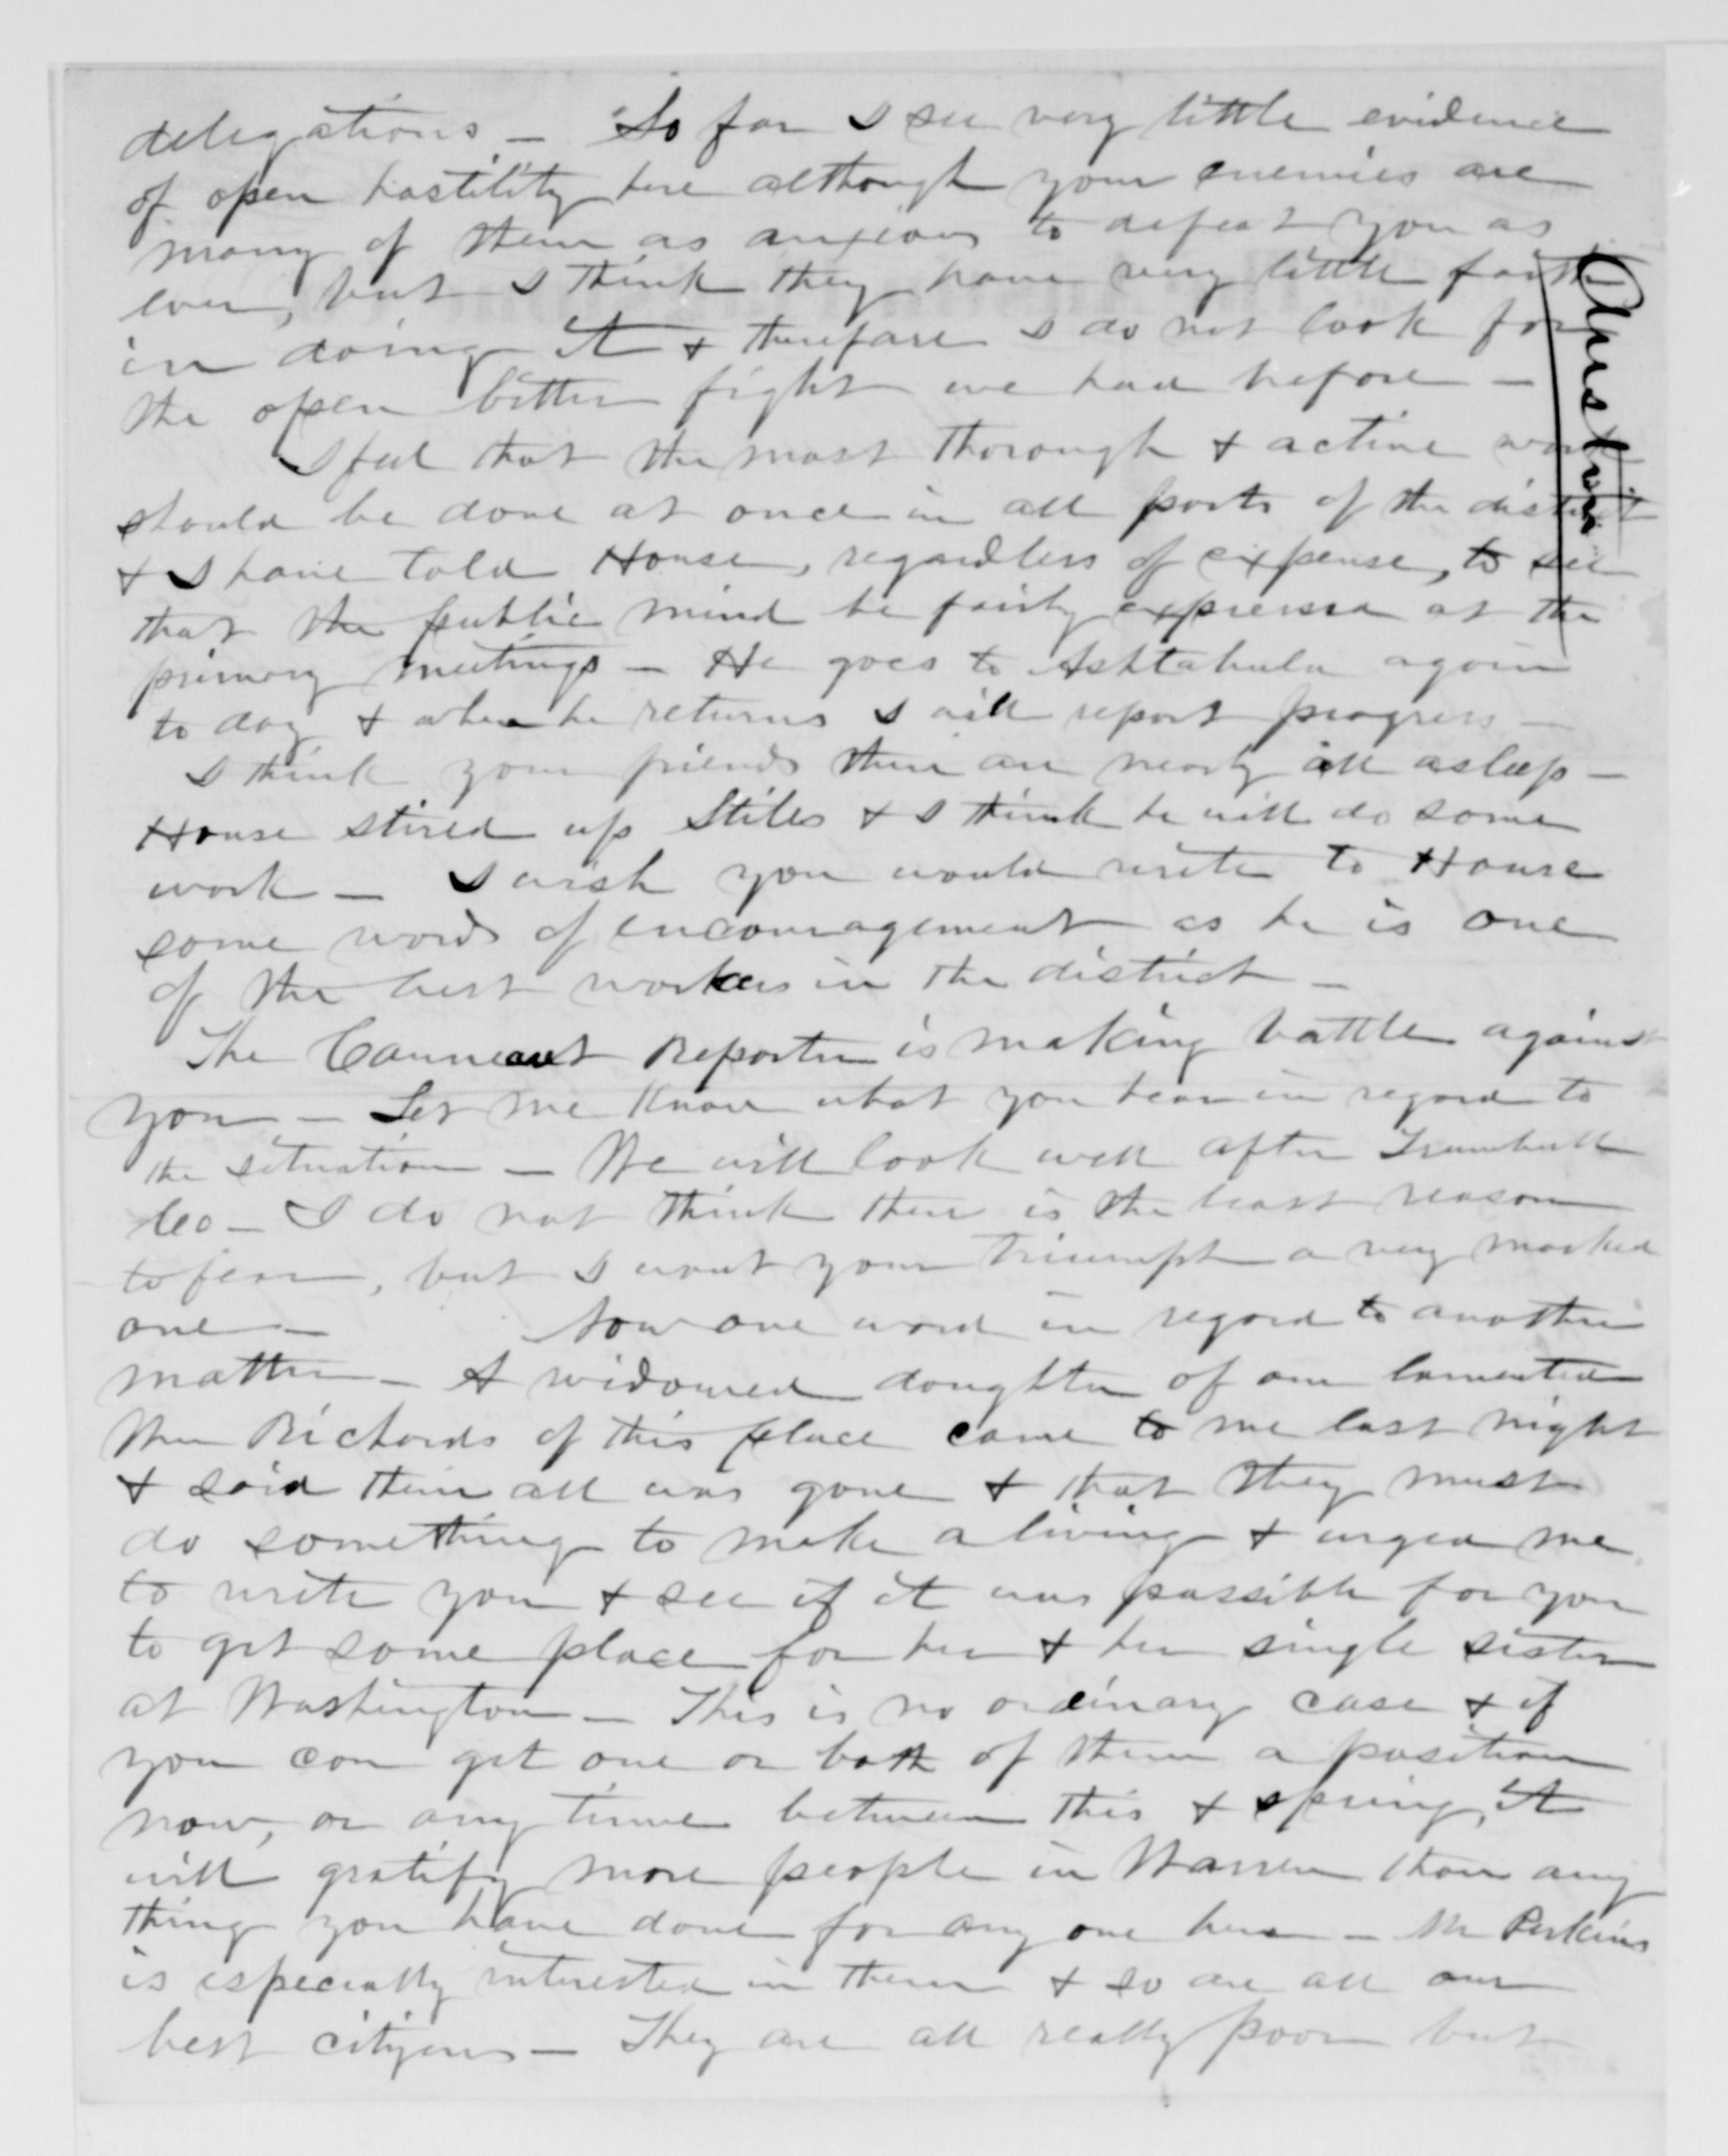 delegations - So far I see very little evidence
of open hostility here although your enemies are
many of them as anxious to defeat you as
ever, but I think they have very little faith
in doing it & therefore I do not look for
the open bitter fight we had before -
I feel that the most thorough & active work
should be done at once in all parts of the district
& I have told House, regardless of expense, to see
that the public mind be fairly expressed at the
primary meetings - He goes to Ashtabula again
to day & when he returns I will report progress -
I think your friends there are nearly all asleep -
House stired up Stiles & I think he will do some
work - I wish you would write to House
some words of encouragement as he is one
of the best workers in the district -
The Conneaut Reporter is making battle against
you - Let me know what you hear in regard to
the situation - We will look well after Trumbull
Co - I do not think there is the least reason
to fear, but I want your triumph a very marked
one - Now one word in regard to another
matter - A widowed daughter of our lamented
Richards of this place came to me last night
& said their all was gone & that they must
do something to make a living & urged me
to write you & see if it was possible for you
to get some place for her & her single sister
at Washington - This is no ordinary case & if
you can get one or both of them a position
now, or any time between this & spring, it
will gratify more people in Warren than any
thing you have done for any one here - Mr Perkins
is especially interested in them & so are all our
best citizens - They are all really poor but
Austin